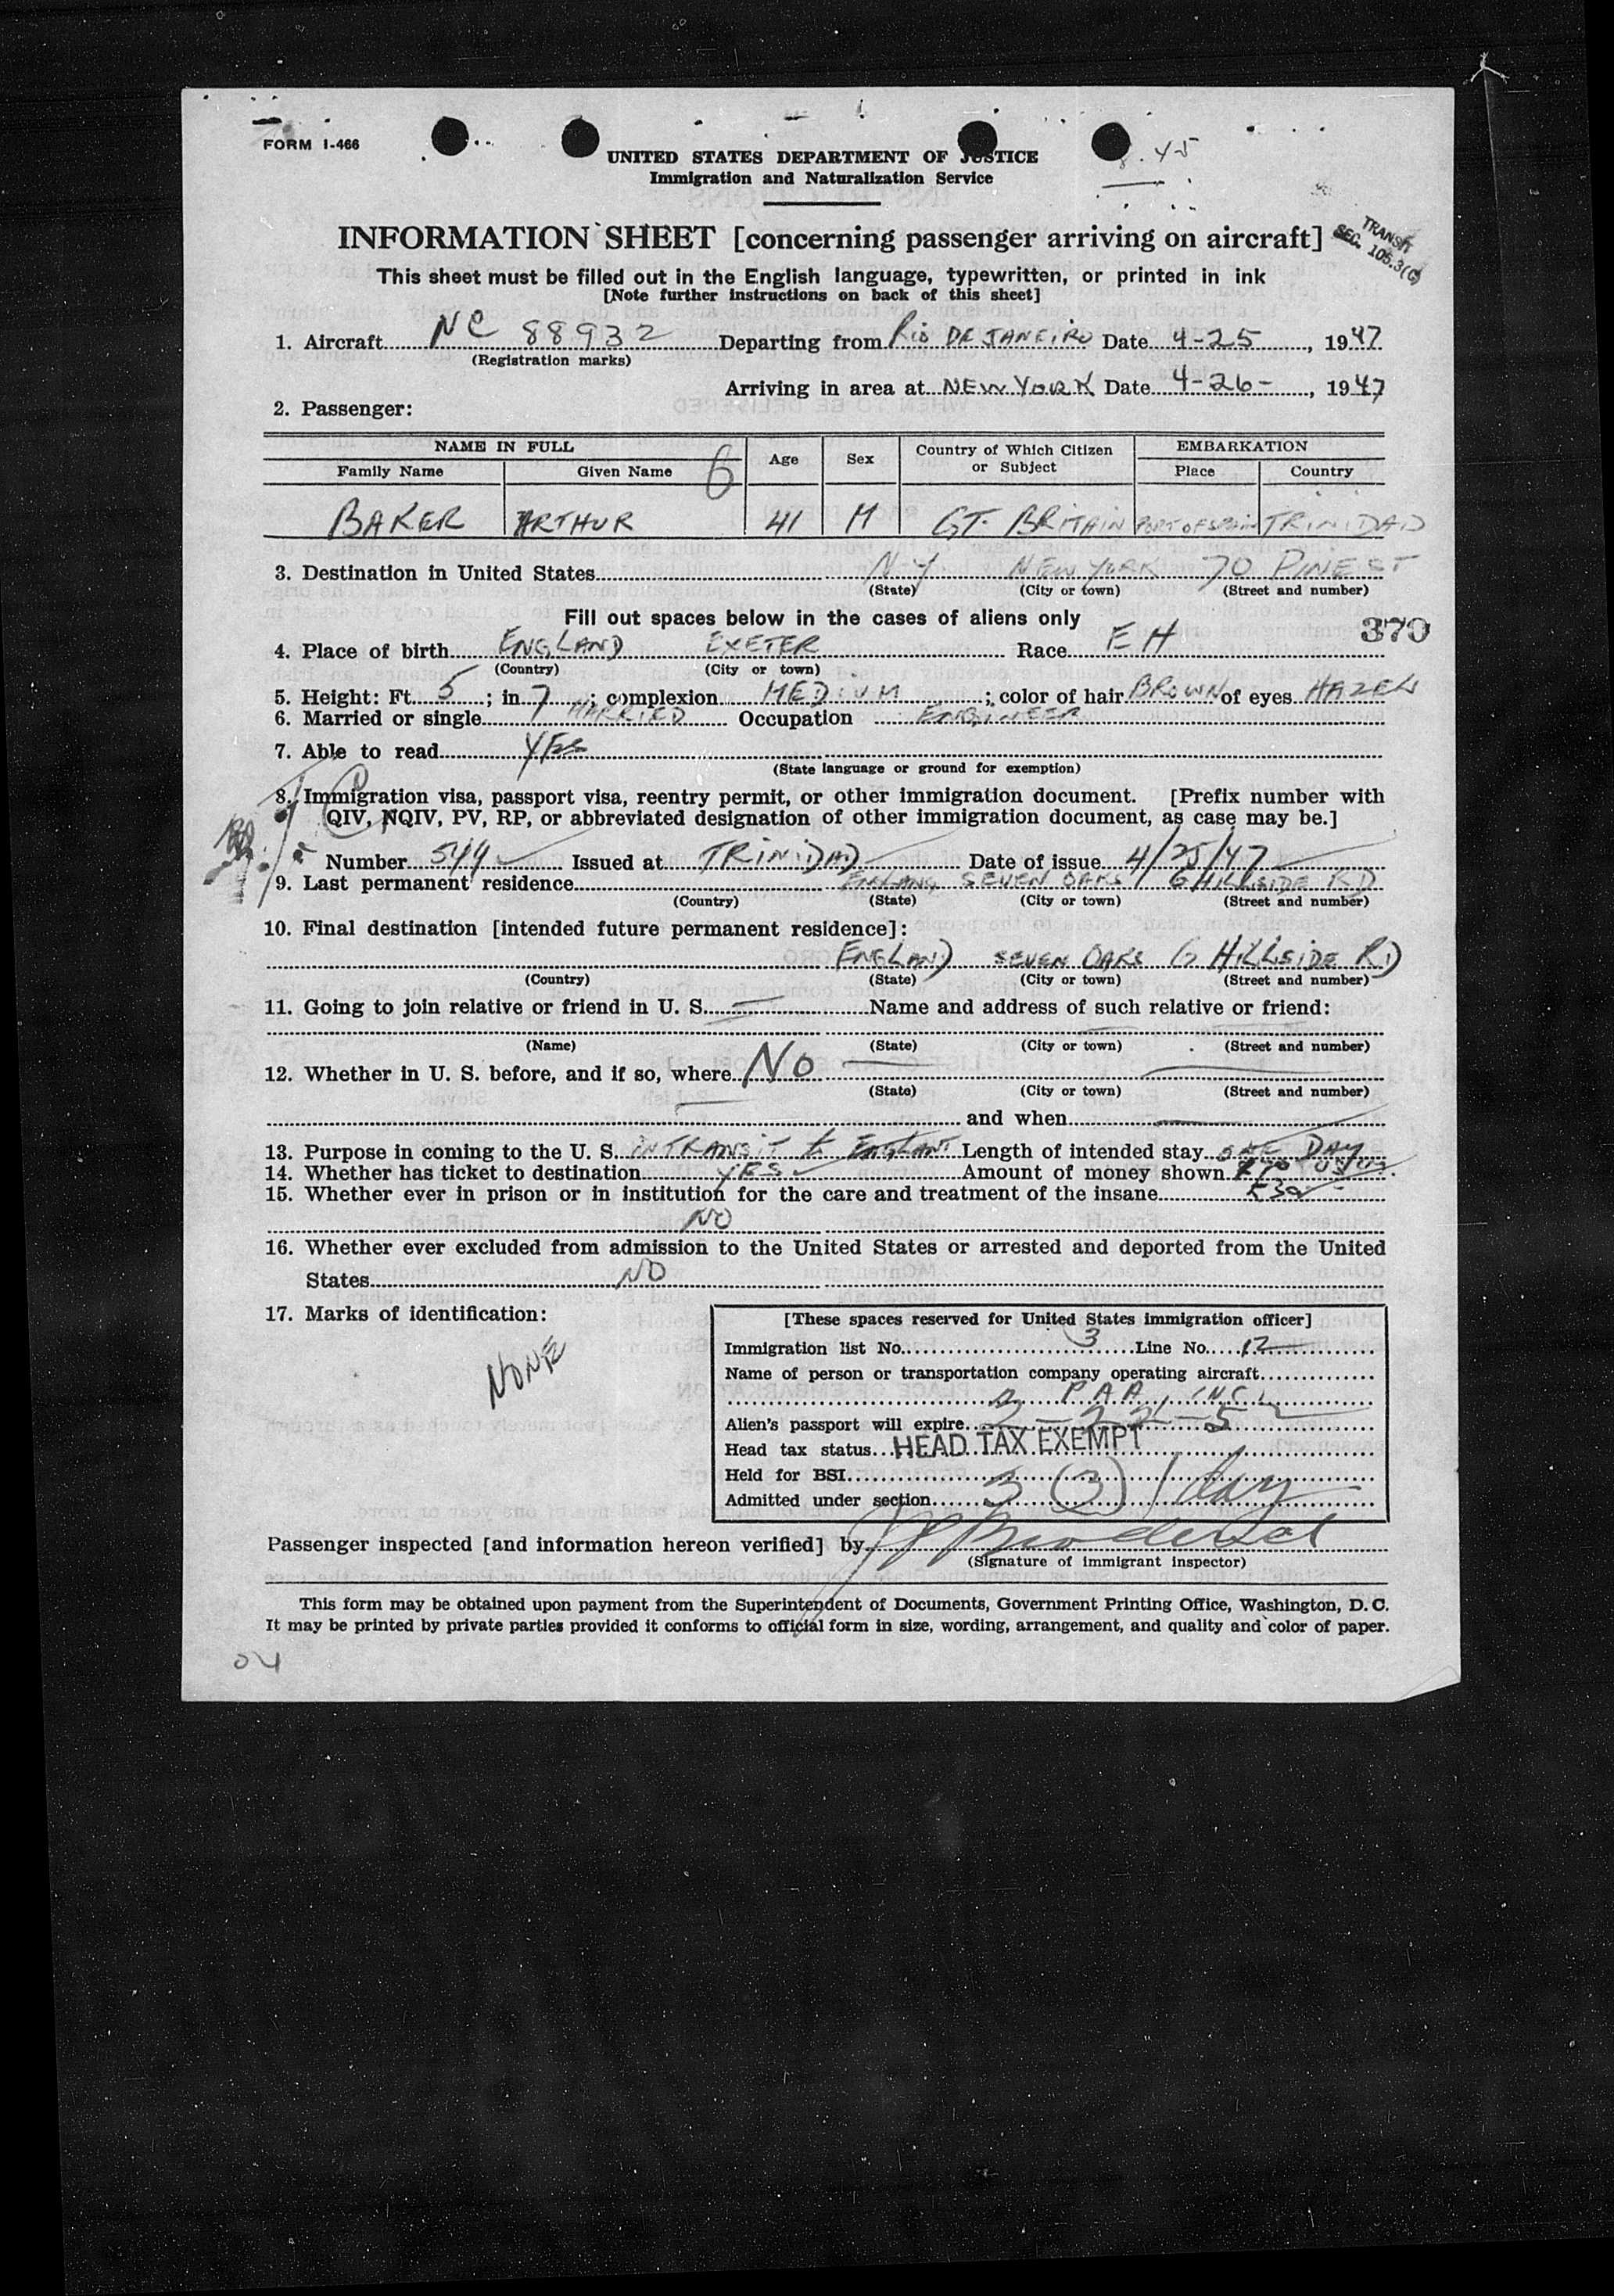 FORM I-466
UNITED STATES DEPARTMENT OF JUSTICE
Immigration and Naturalization Service
INFORMATION SHEET [concerning passenger arriving on aircraft]
TRANSIT
SEC. 105.3(C)
This sheet must be filled out in the English language, typewritten, or printed in ink
[Note further instructions on back of this sheet]
1. Aircraft NC 88932 Departing from RIO DE JANEIRO Date 4-25, 1947
(Registration marks)
Arriving in area at NEW YORK Date 4-26-, 1947
2. Passenger:
NAME IN FULL Age Sex Country of Which Citizen or Subject EMBARKATION
Family Name Given Name 6 Place Country
BAKER ARTHUR 41 M GT. BRITAIN PORT OF SPAIN TRINIDAD
3. Destination in United States N-Y NEW YORK 70 PINE ST
(State) (City or town) (Street and number)
Fill out spaces below in the cases of aliens only
370
4. Place of birth ENGLAND EXETER Race E H
(Country) (City or town)
5. Height: Ft. 5; in 7; complexion MEDIUM; color of hair BROWN of eyes HAZEL
6. Married or single MARRIED Occupation ENGINEER
7. Able to read YES
(State language or ground for exemption)
8. Immigration visa, passport visa, reentry permit, or other immigration document. [Prefix number with
QIV, NQIV, PV, RP, or abbreviated designation of other immigration document, as case may be.]
Number 544 Issued at TRINIDAD Date of issue 4/25/47
9. Last permanent residence ENGLAND SEVEN OAKS 6 HILLSIDE RD
(Country) (State) (City or town) (Street and number)
10. Final destination [intended future permanent residence]:
ENGLAND SEVEN OAKS 6 HILLSIDE RD
(Country) (State) (City or town) (Street and number)
11. Going to join relative or friend in U. S. — Name and address of such relative or friend:
(Name) (State) (City or town) (Street and number)
12. Whether in U. S. before, and if so, where NO
(State) (City or town) (Street and number)
and when
13. Purpose in coming to the U. S. IN TRANSIT to ENGLAND Length of intended stay ONE DAY
14. Whether has ticket to destination YES Amount of money shown
15. Whether ever in prison or in institution for the care and treatment of the insane
NO
16. Whether ever excluded from admission to the United States or arrested and deported from the United
States NO
17. Marks of identification:
NONE
[These spaces reserved for United States immigration officer]
Immigration list No. 3 Line No. 12
Name of person or transportation company operating aircraft
PAA, INC.
Alien's passport will expire 2-22-52
Head tax status HEAD TAX EXEMPT
Held for BSI
Admitted under section 3 (3) 1 day
Passenger inspected [and information hereon verified] by
(Signature of immigrant inspector)
This form may be obtained upon payment from the Superintendent of Documents, Government Printing Office, Washington, D. C.
It may be printed by private parties provided it conforms to official form in size, wording, arrangement, and quality and color of paper.
04